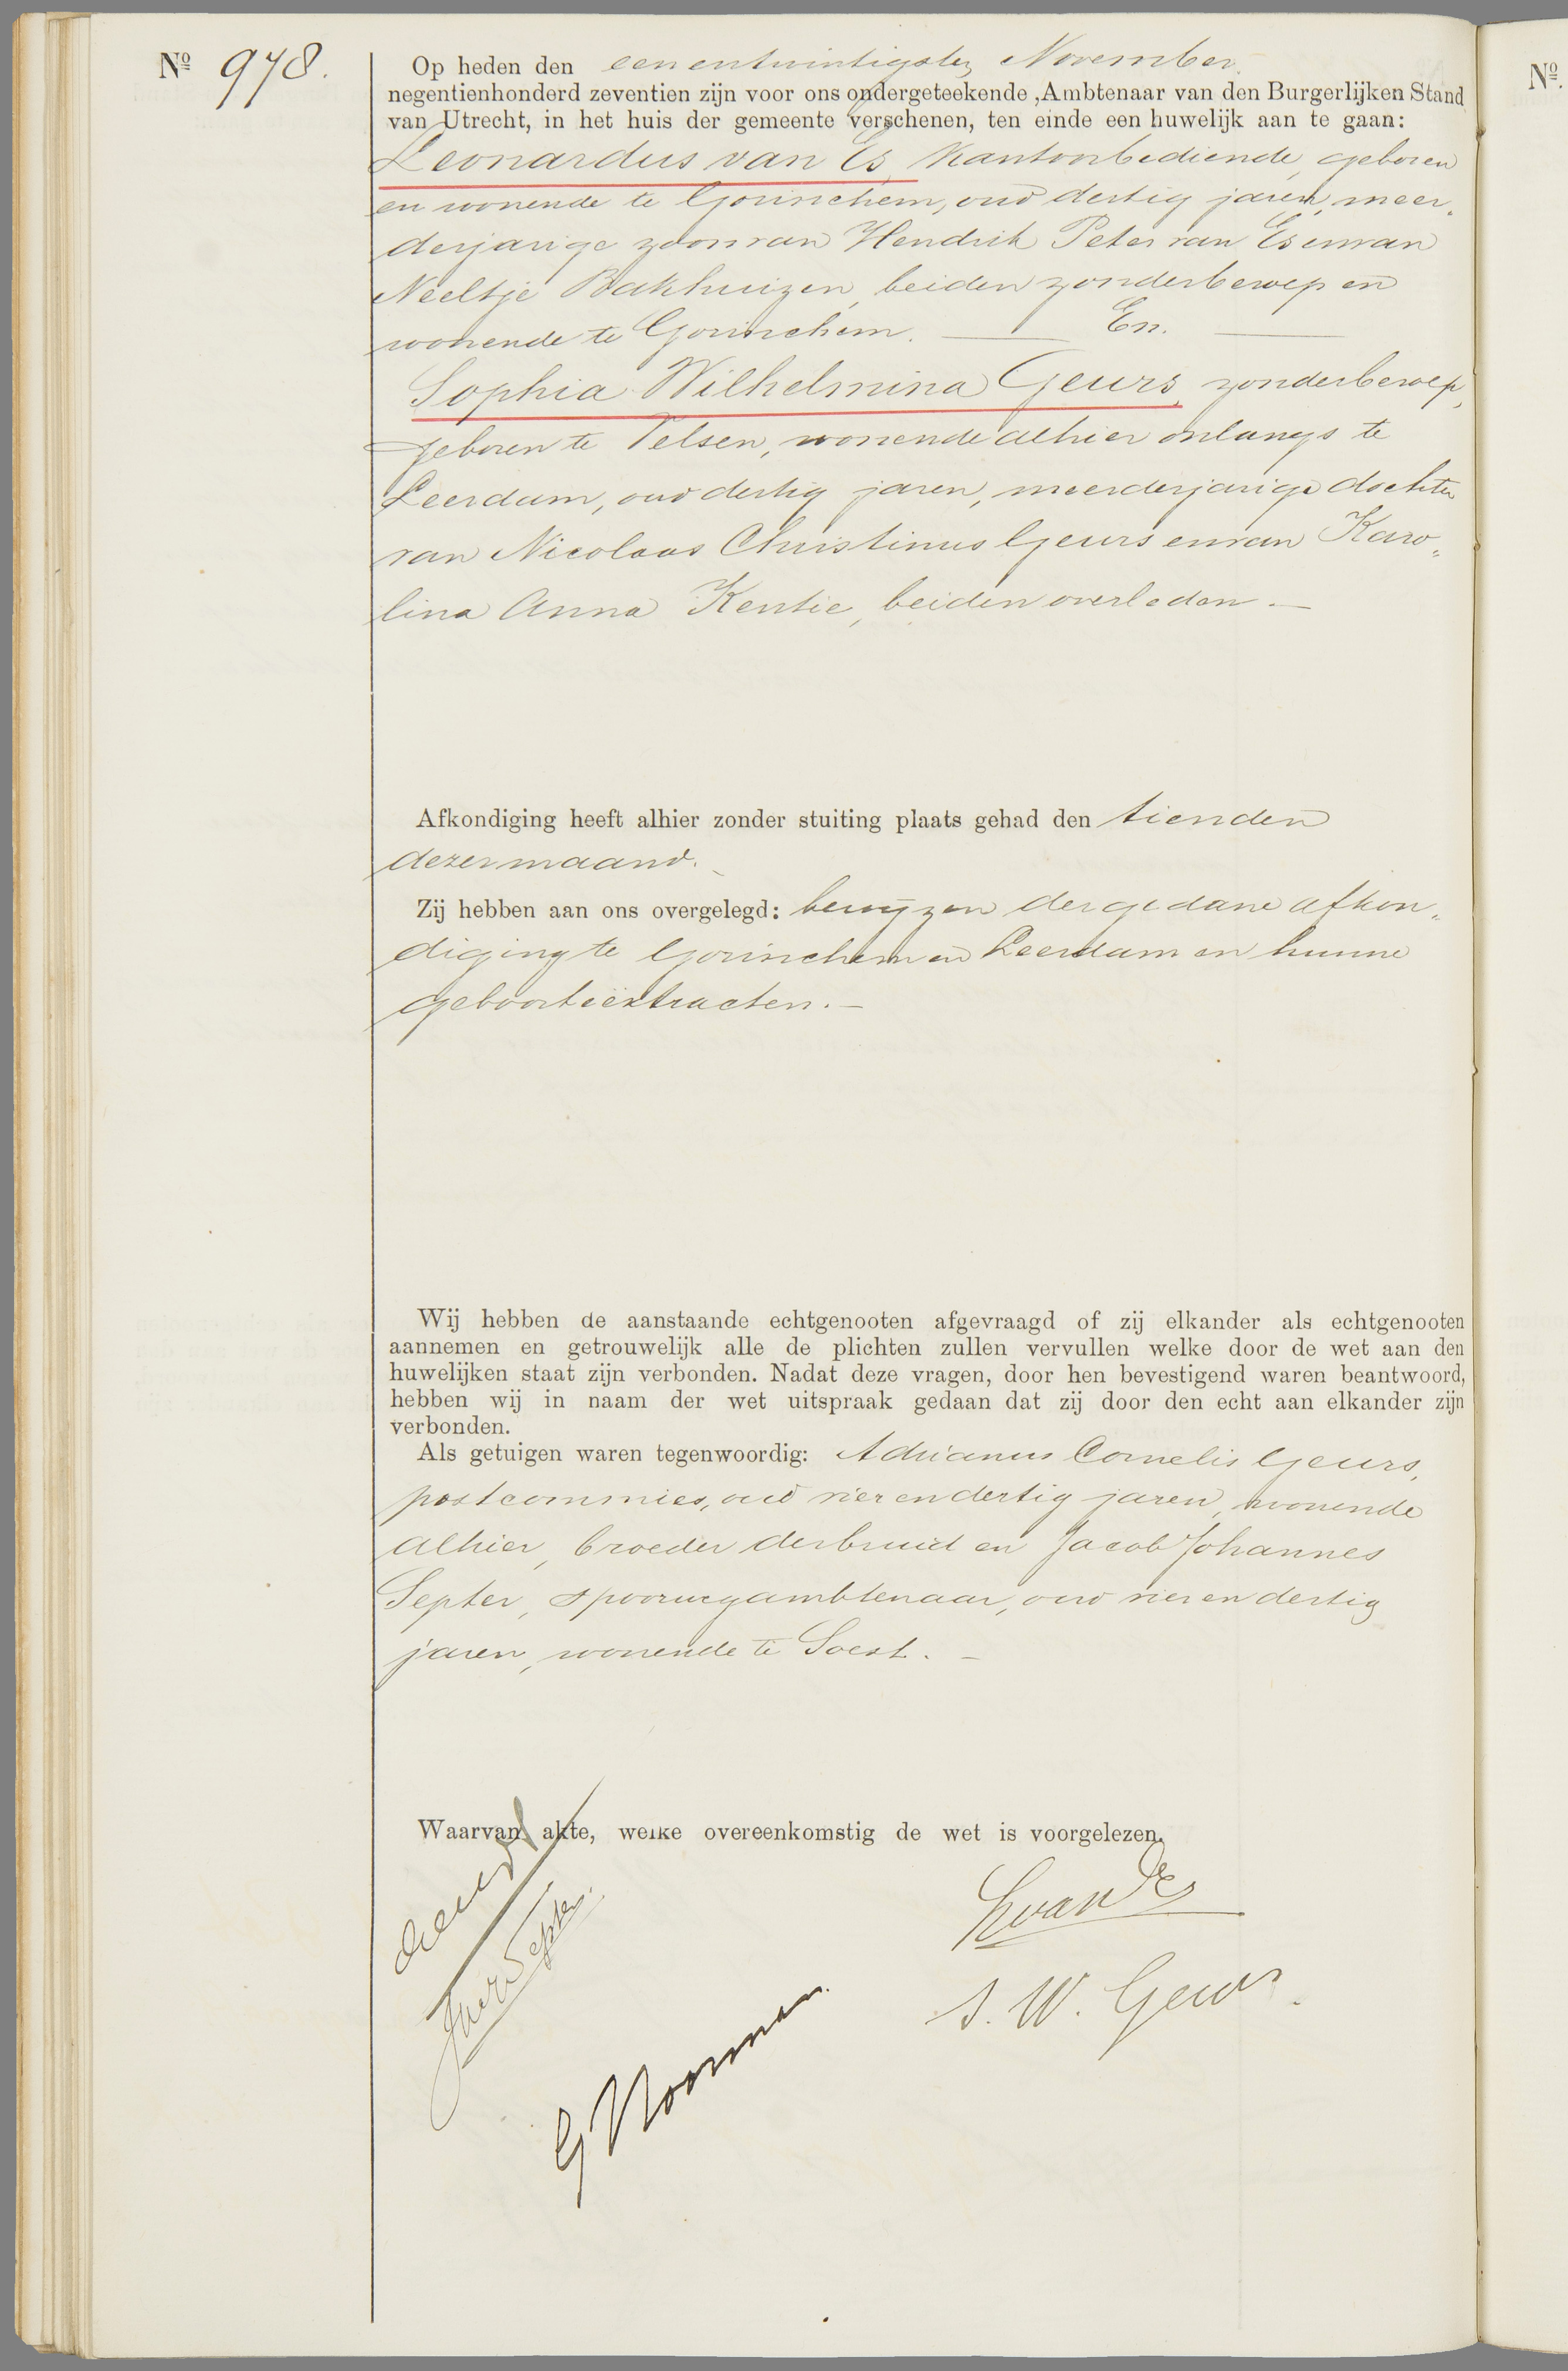 Nº 978.
Op heden den eenentwintigsten November
negentienhonderd zeventien zijn voor ons ondergeteekende, Ambtenaar van den Burgerlijken Stand
van Utrecht, in het huis der gemeente verschenen, ten einde een huwelijk aan te gaan:
Leonardus van Es, kantoorbediende, geboren
en wonende te Gorinchem, oud dertig jaren, meer„
derjarige zoon van Hendrik Peter van Es en van
Neeltje Bakhuizen, beiden zonder beroep en
wonende te Gorinchem. — En. —
Sophia Wilhelmina Geurs, zonder beroep,
geboren te Velsen, wonende alhier onlangs te
Leerdam, oud dertig jaren, meerderjarige dochter
van Nicolaas Christinus Geurs en van Karo„
lina Anna Kentie, beiden overleden. —
Afkondiging heeft alhier zonder stuiting plaats gehad den tienden
dezer maand.
Zij hebben aan ons overgelegd: bewijzen der gedane afkon„
diging te Gorinchem en Leerdam en hunne
geboorteextracten. —
Wij hebben de aanstaande echtgenooten afgevraagd of zij elkander als echtgenooten
aannemen en getrouwelijk alle de plichten zullen vervullen welke door de wet aan den
huwelijken staat zijn verbonden. Nadat deze vragen, door hen bevestigend waren beantwoord,
hebben wij in naam der wet uitspraak gedaan dat zij door den echt aan elkander zijn
verbonden.
Als getuigen waren tegenwoordig: Adrianus Cornelis Geurs,
postcommies, oud vier en dertig jaren, wonende
alhier, broeder der bruid en Jacob Johannes
Septer, spoorwegambtenaar, oud vier en dertig
jaren, wonende te Soest. —
Waarvan akte, welke overeenkomstig de wet is voorgelezen.
L van Es
S. W. Geurs.
G Noorman
Nº.